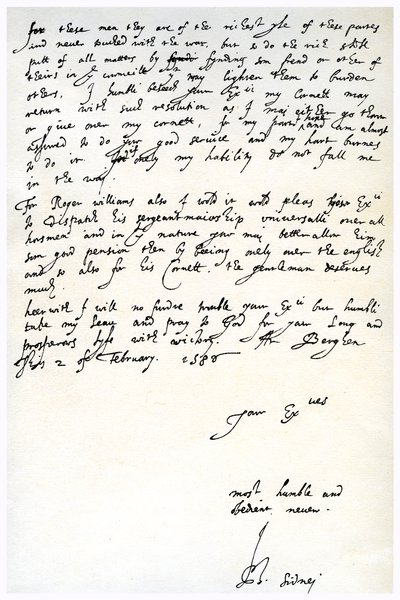 for these men they are of the richest of these partes
and never tuched with the war, but so do the rich still
putt of all matters by fynding som frend or other of
theirs in ye cownceile may lighten them to burden
others, I humbli beseech your Exij my Cornett may
return with such resolution as I mai either go thorow
or give over my cornett, for my part and am almost
assured to do your good service and my hart burnes
to do it. onely my hability do not fall me
in the way.
For Roger williams also I wold it wold pleas your Exij
to dispatche his sergeantmaiorship universalli over all
horsmen and in ye nature your mai better allow him
som good pension then by beeing onely over the english
and so also for his Cornett. the gentleman deserves
much.
heerwith I will no furdre trouble your Exij but humbli
take my leave and pray to God for your Long and
prosperous lyfe with victory. At Berghen
this 2 of February. 1586
Your Exues
most humble and
obedient neuew.
Ph. Sidnei